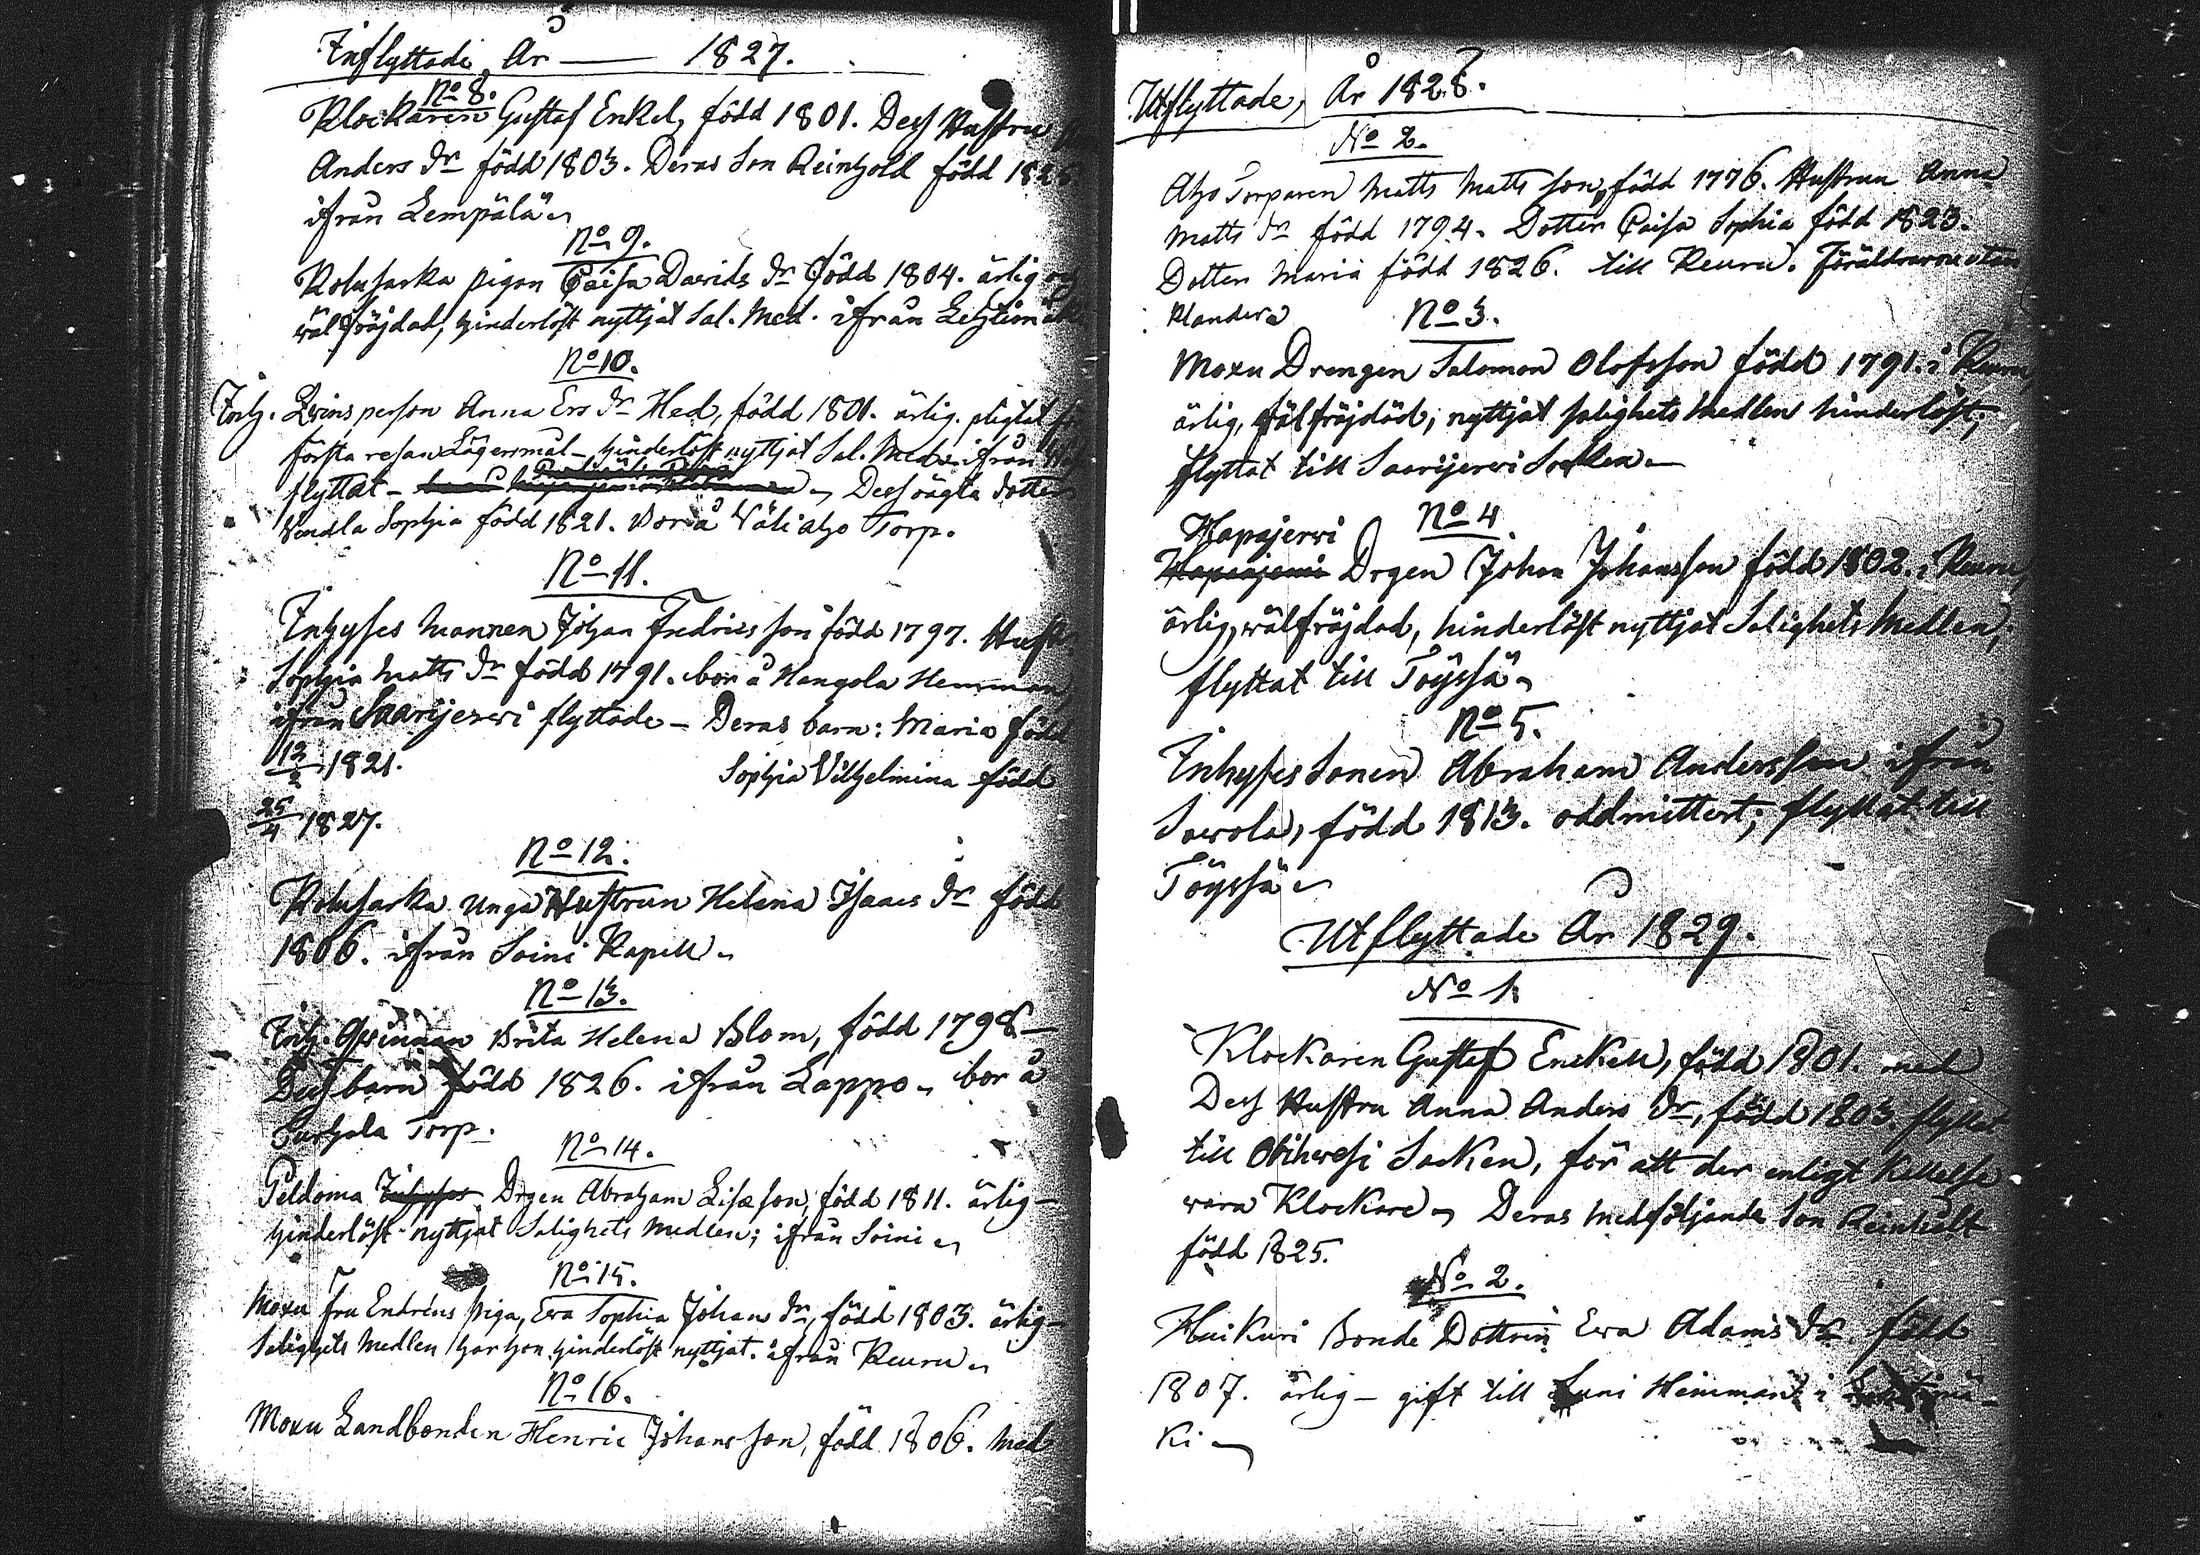 Inflyttade År — 1827.
No 8.
Klockaren Gustaf Enkel, född 1801. Dess Hustru
Anders dr född 1803. Deras Son Reinhold född 182
ifrån Lempälä
No 9.
Kolusarka pigan Caisa Davids dr född 1804. ärlig
wälfräjdad, hinderlöst nyttjat Sal. Med. ifrån Lehtimäki
No 10.
Inh. Qvinsperson Anna Ers dr Hed, född 1801. ärlig. pligtat
första resan Lägersmål - hinderlöst nyttjat Sal. Med. ifrån
flyttat - Dess oägta dotter
Vendla Sophia född 1821. Bor å Väliaho Torp.
No 11.
Inhyses Mannen Johan Fredricsson född 1797. Hust.
Sophia Matts dr född 1791. bor å Hangola Hemman
ifrån Saarijerwi flyttade - Deras barn: Maria född
12/2 1821. Sophia Vilhelmina född
25/4 1827.
No 12.
Kolusarka unga Hustrun Helena Isaacs dr född
1806. ifrån Soini Kapell
No 13.
Inh. Qvinnan Brita Helena Blom, född 1798 —
Dess barn född 1826. ifrån Lappo - bor å
Torp.
No 14.
Peldoma Inhyses Drgen Abraham Lisason, född 1811. ärlig —
hinderlöst nyttjat Salighets Medlen; ifrån Soini
No 15.
Moxu fru Endréns Piga, Eva Sophia Johans dr, född 1803. ärlig —
Salighets Medlen har hon hinderlöst nyttjat. ifrån Keuru
No 16.
Moxu Landbonden Henric Johansson, född 1806. Med
Utflyttade, År 1828.
No 2.
Aho Torparen Matts Mattsson, född 1776. Hustrun Anna
Matts dr född 1794. Dotter Caisa Sophia född 1823.
Dotter Maria född 1826. till Keuru. Föräldrarne utan
klander
No 3.
Moxu Drengen Salomon Olofsson född 1791. i Keuru
ärlig, wälfräjdad, nyttjat salighets Medlen hinderlöst;
flyttat till Saarijerwi Socken
No 4
Hapajerwi
Drgen Johan Johansson född 1802. i Keuru,
ärlig, wälfräjdad, hinderlöst nyttjat Salighets Medlen,
flyttat till Töyssä
No 5.
Inhyses Sonen Abraham Andersson ifrån
Sawola, född 1813. oadmittert; flyttat till
Töyssä
Utflyttade År 1829.
No 1.
Klockaren Gustaf Enckell, född 1801. med
Dess Hustru Anna Anders dr, född 1803. flyttat
till Orihwesi Socken, för att der enligt kallelse
wara Klockare - Deras medföljande Son Reinholt
född 1825.
No 2.
Huikuri Bonde Dottren Ewa Adams dr född
1807. ärlig - gift till Hemman i
ki